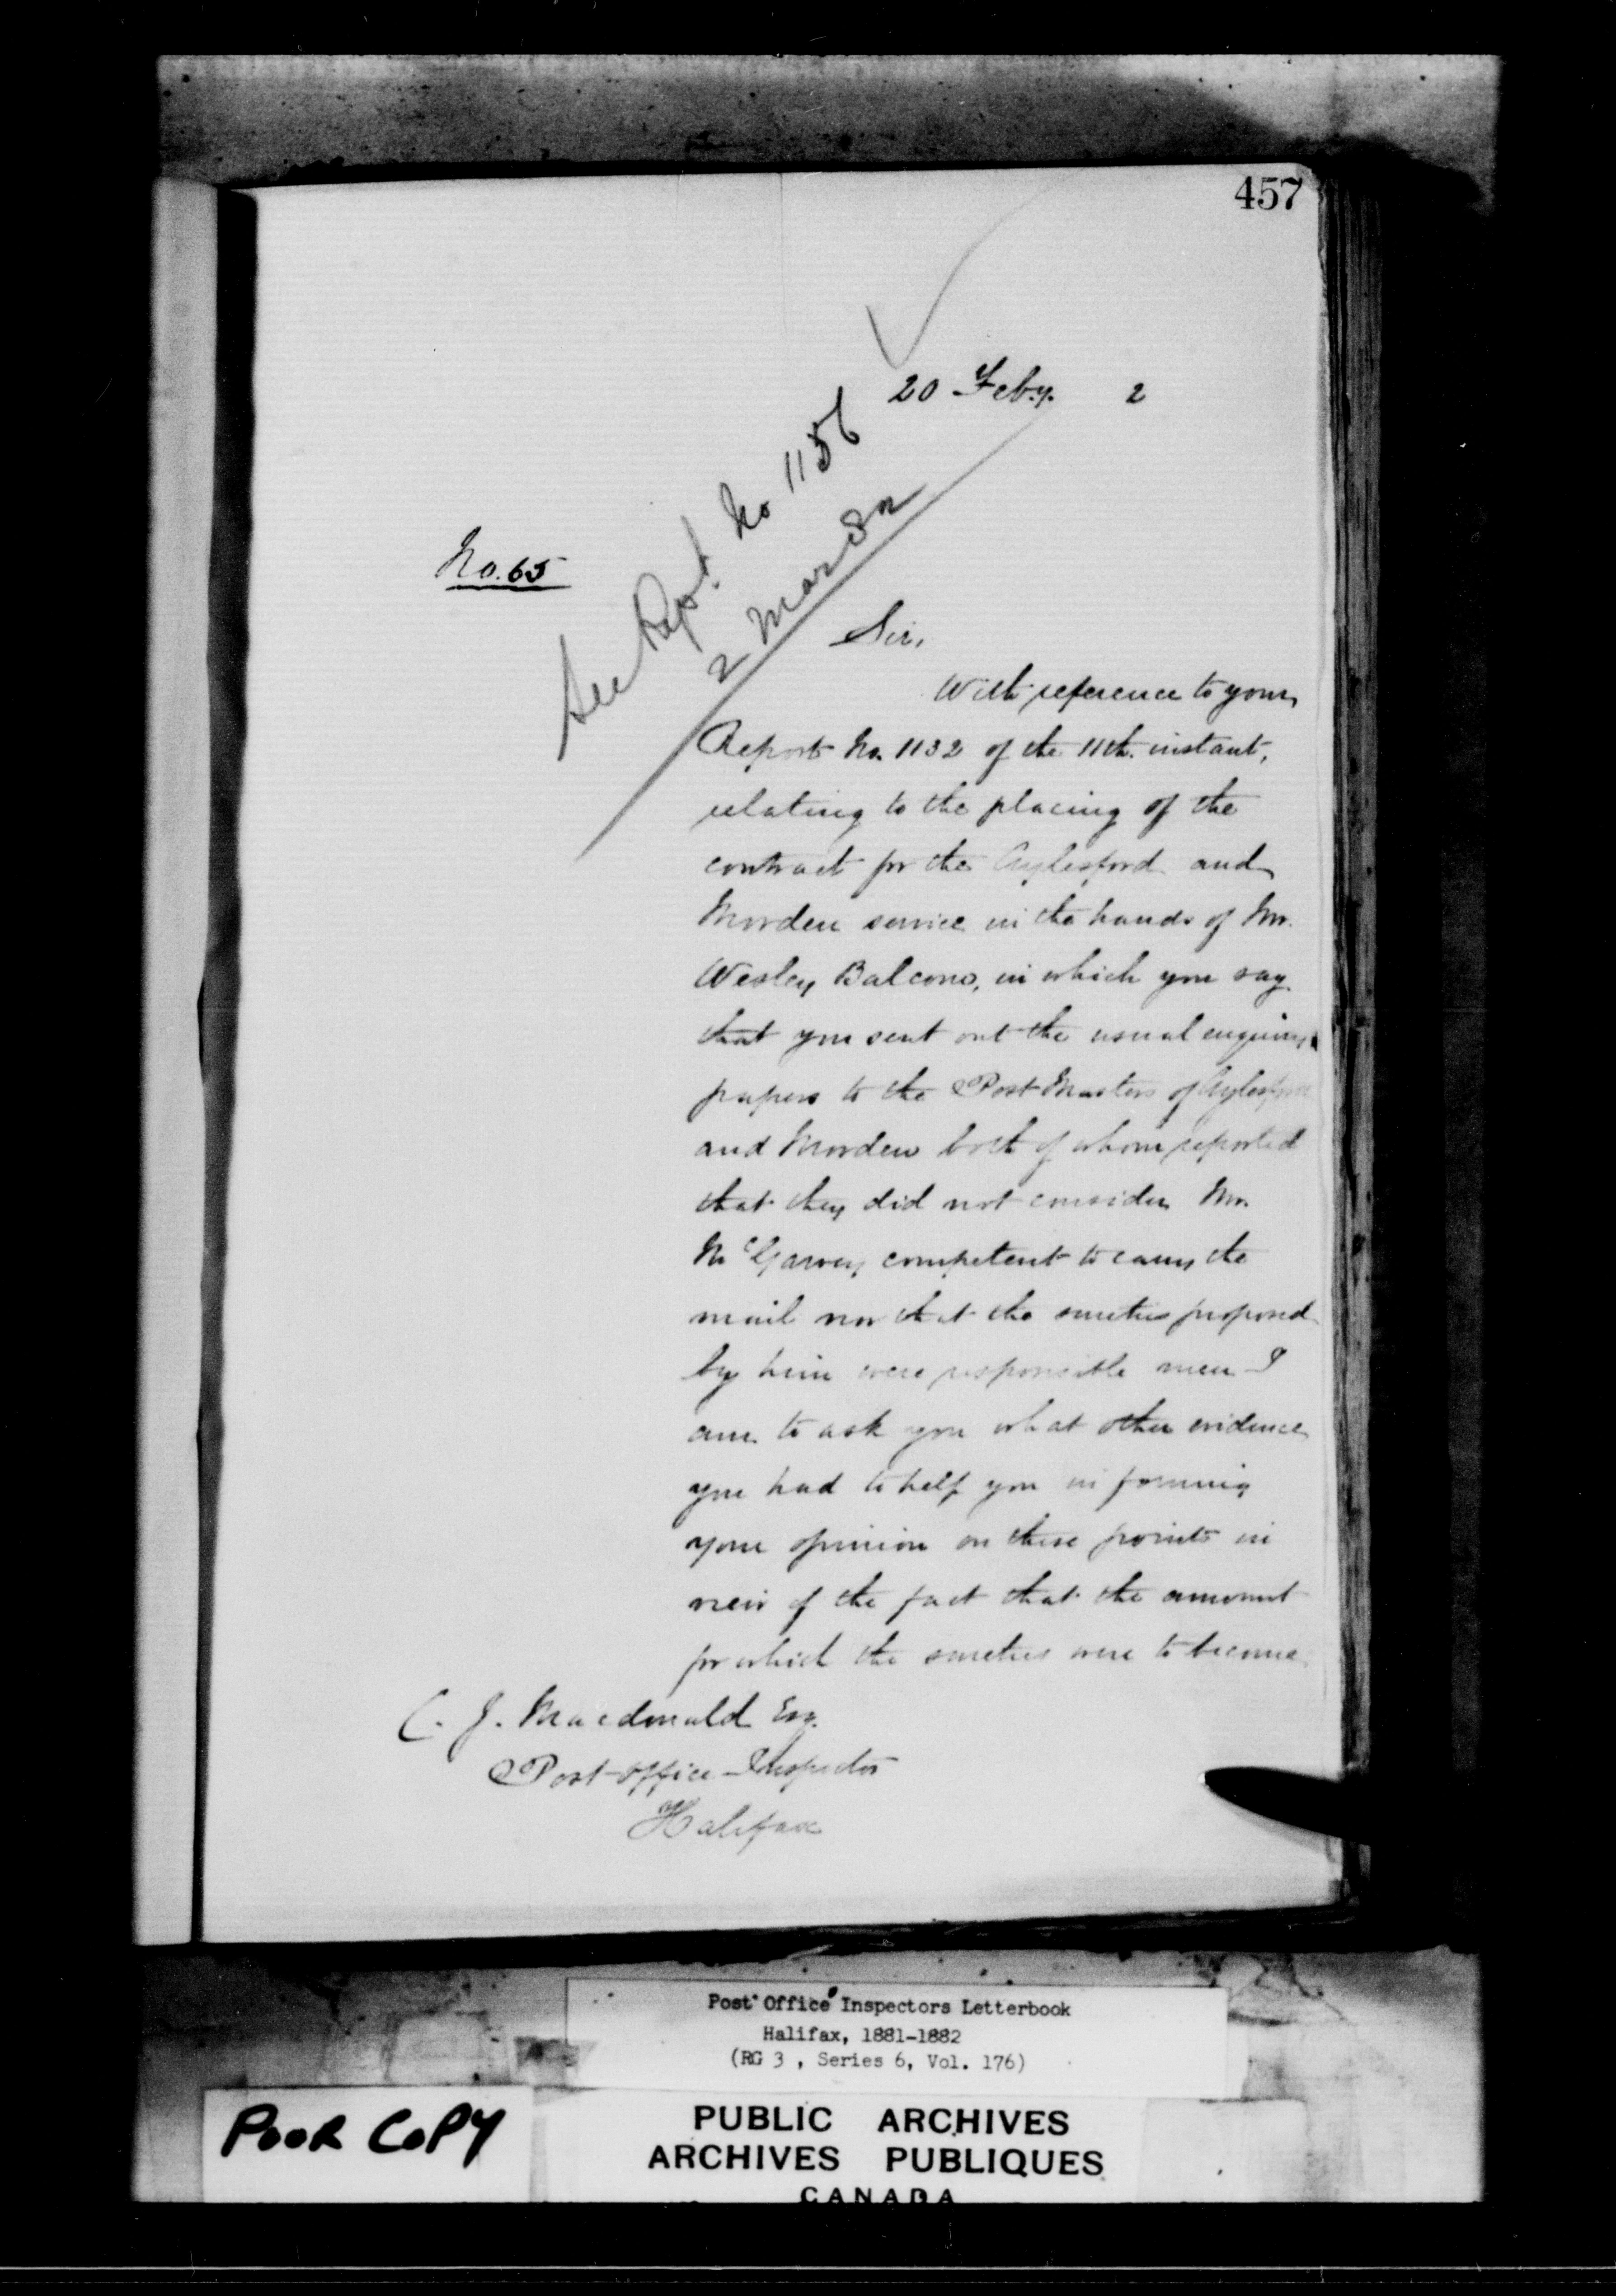 457
20 Feby. 2
See Rept. No 1156
2 Mar 82
No. 65
Sir,
With reference to your
Report No. 1132 of the 11th. instant,
relating to the placing of the
contract for the Aylesford and
Morden service in the hands of Mr.
Wesley Balcom, in which you say
that you sent out the usual enquiry
papers to the Post Masters of Aylesford
and Morden both of whom reported
that they did not consider Mr.
McGarvey competent to carry the
mail nor that the sureties proposed
by him were responsible men I
am to ask you what other evidence
you had to help you in forming
your opinion on these points in
view of the fact that the amount
for which the sureties were to become
C. J. Macdonald Esq.
Post Office Inspector
Halifax
Post Office Inspectors Letterbook
Halifax, 1881-1882
(RG 3 , Series 6, Vol. 176)
POOR COPY
PUBLIC ARCHIVES
ARCHIVES PUBLIQUES
CANADA